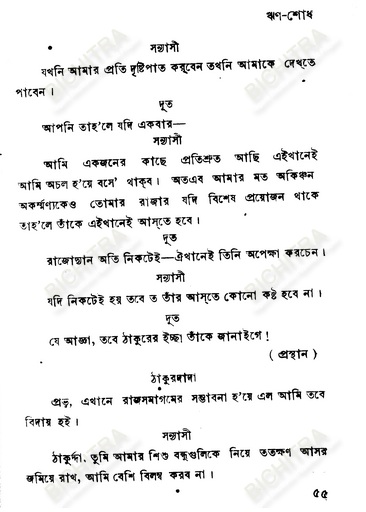 ঋণ-শোধ
সন্ন্যাসী
যখনি আমার প্রতি দৃষ্টিপাত করবেন তখনি আমাকে দেখ্‌তে
পাবেন।
দূত
আপনি তাহ'লে যদি একবার—
সন্ন্যাসী
আমি একজনের কাছে প্রতিশ্রুত আছি এইখানেই
আমি অচল হ'য়ে বসে' থাক্‌ব। অতএব আমার মত অকিঞ্চন
অকর্ম্মণ্যকেও তোমার রাজার যদি বিশেষ প্রয়োজন থাকে
তাহ'লে তাঁকে এইখানেই আস্‌তে হবে।
দূত
রাজোদ্যান অতি নিকটেই—ঐখানেই তিনি অপেক্ষা করচেন।
সন্ন্যাসী
যদি নিকটেই হয় তবে ত তাঁর আস্‌তে কোনো কষ্ট হবে না।
দূত
যে আজ্ঞা, তবে ঠাকুরের ইচ্ছা তাঁকে জানাইগে!
( প্রস্থান )
ঠাকুরদাদা
প্রভু, এখানে রাজসমাগমের সম্ভাবনা হ'য়ে এল আমি তবে
বিদায় হই।
সন্ন্যাসী
ঠাকুর্দ্দা, তুমি আমার শিশু বন্ধুগুলিকে নিয়ে ততক্ষণ আসর
জমিয়ে রাখ, আমি বেশি বিলম্ব করব না।
৫৫
BICHITRA